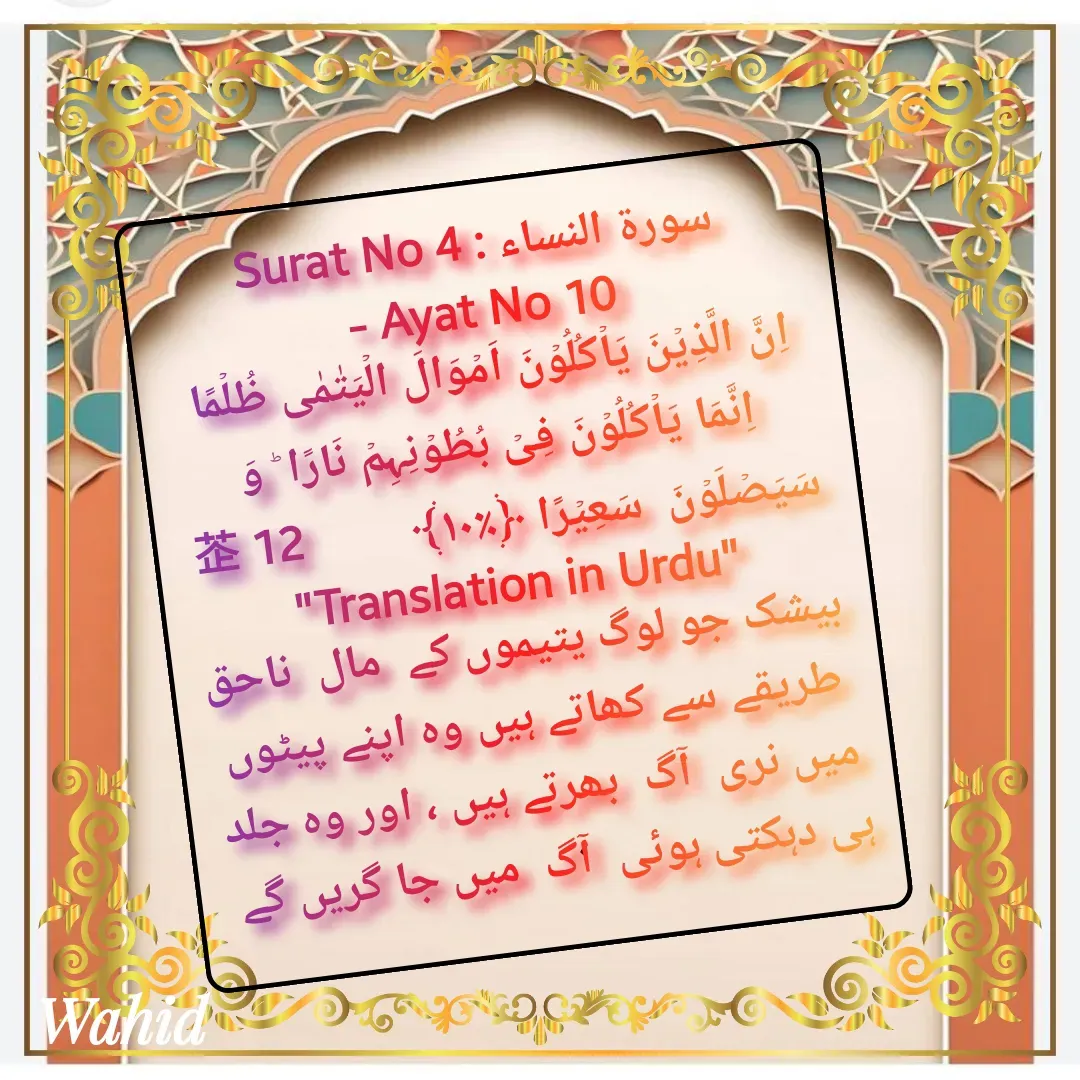 سورة النساء : Surat No 4
- Ayat No 10
اِنَّ الَّذِیۡنَ یَاۡکُلُوۡنَ اَمۡوَالَ الۡیَتٰمٰی ظُلۡمًا
اِنَّمَا یَاۡکُلُوۡنَ فِیۡ بُطُوۡنِہِمۡ نَارًا ؕ وَ
سَیَصۡلَوۡنَ سَعِیۡرًا ﴿٪۱۰﴾ 12
"Translation in Urdu"
بیشک جو لوگ یتیموں کے مال ناحق
طریقے سے کھاتے ہیں وہ اپنے پیٹوں
میں نری آگ بھرتے ہیں ، اور وہ جلد
ہی دہکتی ہوئی آگ میں جا گریں گے
Wahid